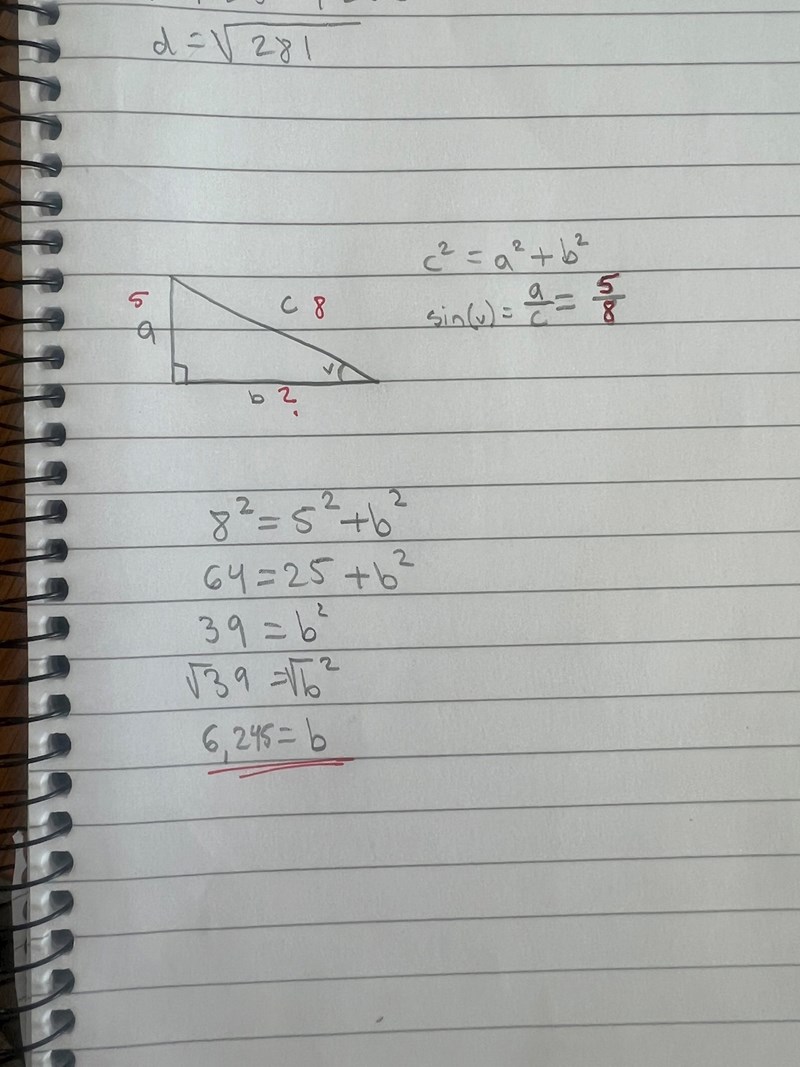 d = √281
c² = a² + b²
sin(v) = a/c = 5/8
5
a
c 8
v
b ?
8² = 5² + b²
64 = 25 + b²
39 = b²
√39 = √b²
6,245 = b